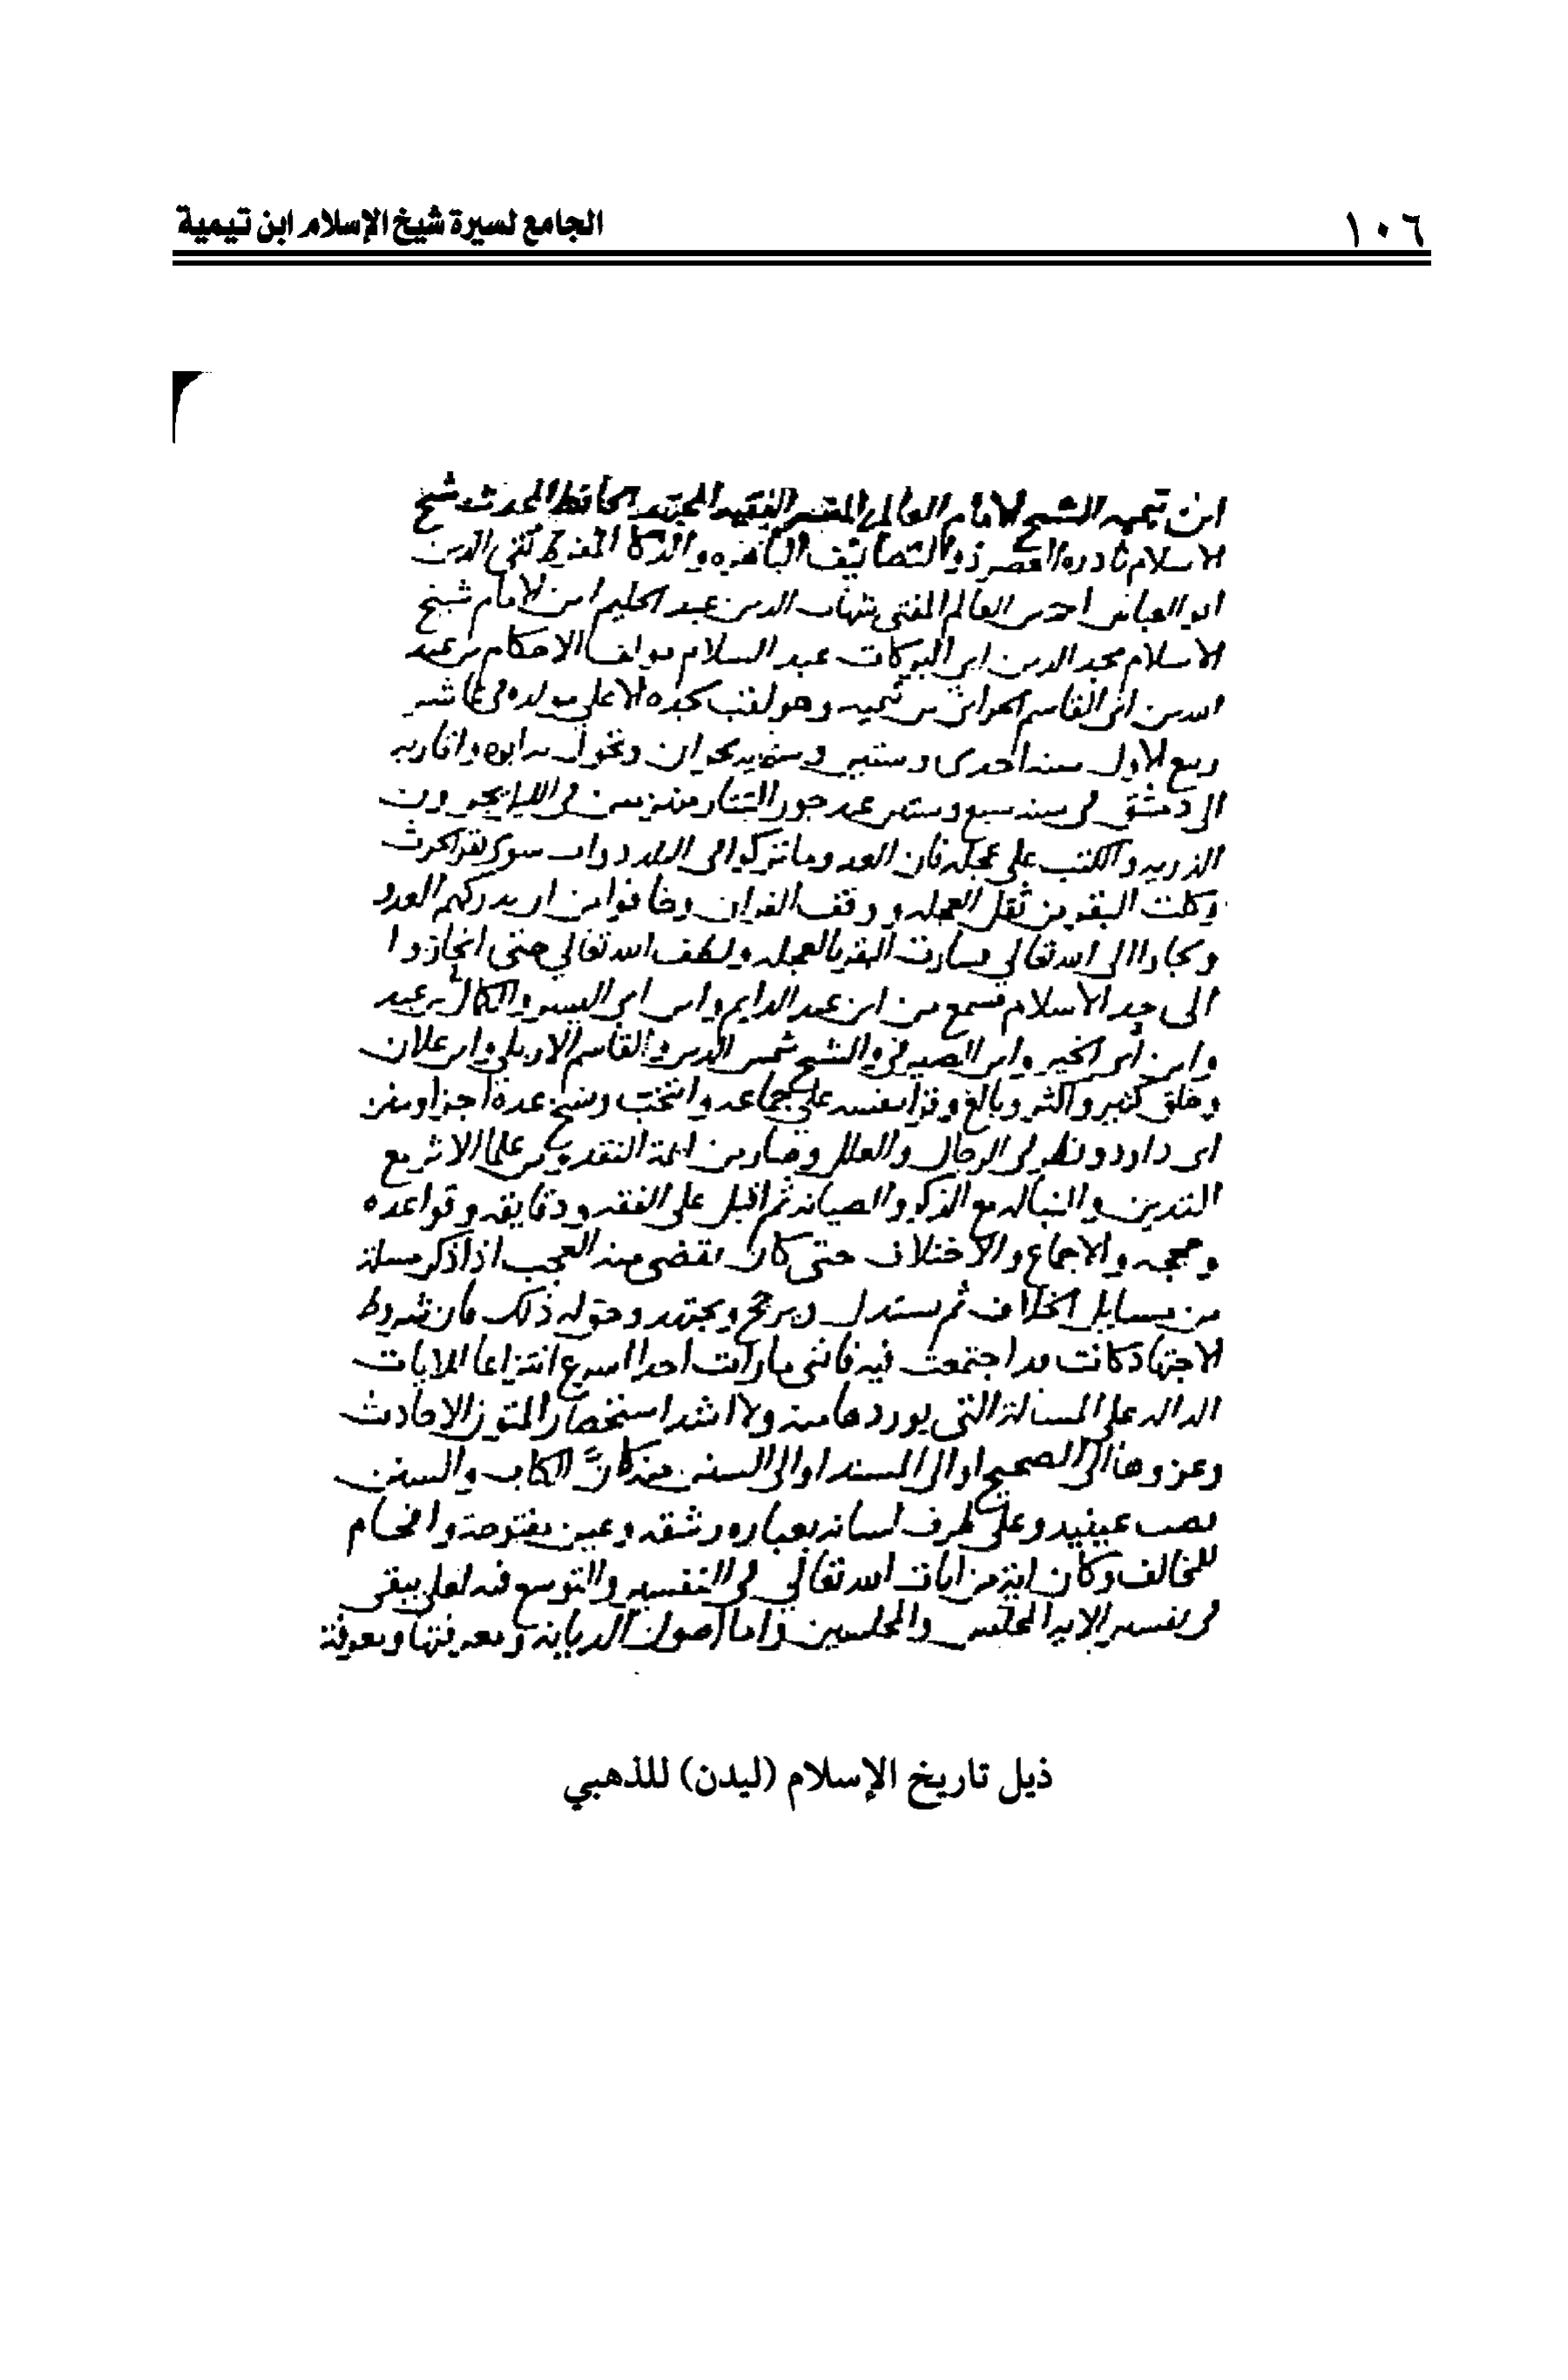 ١٠٦
الجامع لسيرة شيخ الإسلام ابن تيمية
ابن تيميه الشيخ الامام العالم المفسر الفقيه المجتهد الحافظ المحدث شيخ
الاسلام نادرة العصر ذو التصانيف الباهره والذكا المفرط تقي الدين
ابو العباس احمد بن العالم المفتي شهاب الدين عبد الحليم ابن الامام شيخ
الاسلام مجد الدين ابي البركات عبد السلام مولف الاحكام بن عبد
الله بن ابي القاسم الحراني بن تيميه وهو لقب لجده الاعلى مولده في عاشر
ربيع الاول سنه احدى وستين وستمايه بحران وتحول به ابوه واقاربه
الى دمشق في سنه سبع وستين عند جور التتار منهزمين في الليل يجرون
الذريه والكتب على عجله فان العدو ما تركوا في البلد دواب سوى بقر الحرث
وكلت البقر من ثقل العجله ووقف الفران وخافوا من ان يدركهم العدو
ولجاوا الى الله تعالى فسارت البقر بالعجله ولطف الله تعالى حتى انحازوا
الى حد الاسلام فسمع من ابن عبد الدايم وابن ابي اليسر والكمال بن عبد
وابن ابي الخير وابن الصيرفي والشيخ شمس الدين والقاسم الاربلي وابن علان
وخلق كثير واكثر وبالغ وقرا بنفسه على جماعه وانتخب ونسخ عدة اجزا وسنن
ابي داود ونظر في الرجال والعلل وصار من ايمة النقد ومن علما الاثر مع
التدين والنباله مع الذكر والصيانه ثم اقبل على الفقه ودقايقه وقواعده
وحججه والاجماع والاختلاف حتى كان يقضى منه العجب اذا ذكر مسلة
من مسايل الخلاف ثم يستدل ويرجح ويجتهد وحق له ذلك فان شروط
الاجتهاد كانت قد اجتمعت فيه فانني ما رايت احدا اسرع انتزاعا للايات
الداله على المسالة التي يوردها منه ولا اشد استحضارا لمتون الاحاديث
وعزوها الى الصحيح او الى المسند او الى السنن منه كان الكتاب والسنن
نصب عينيه وعلى طرف لسانه بعباره رشقه وعين مفتوحة وافحام
للمخالف وكان اية من ايات الله تعالى في التفسير والتوسع فيه لعله يبقى
في تفسير الايه المجلس والمجلسين واما اصول الديانة ومعرفتها ومعرفة
ذيل تاريخ الإسلام (ليدن) للذهبي